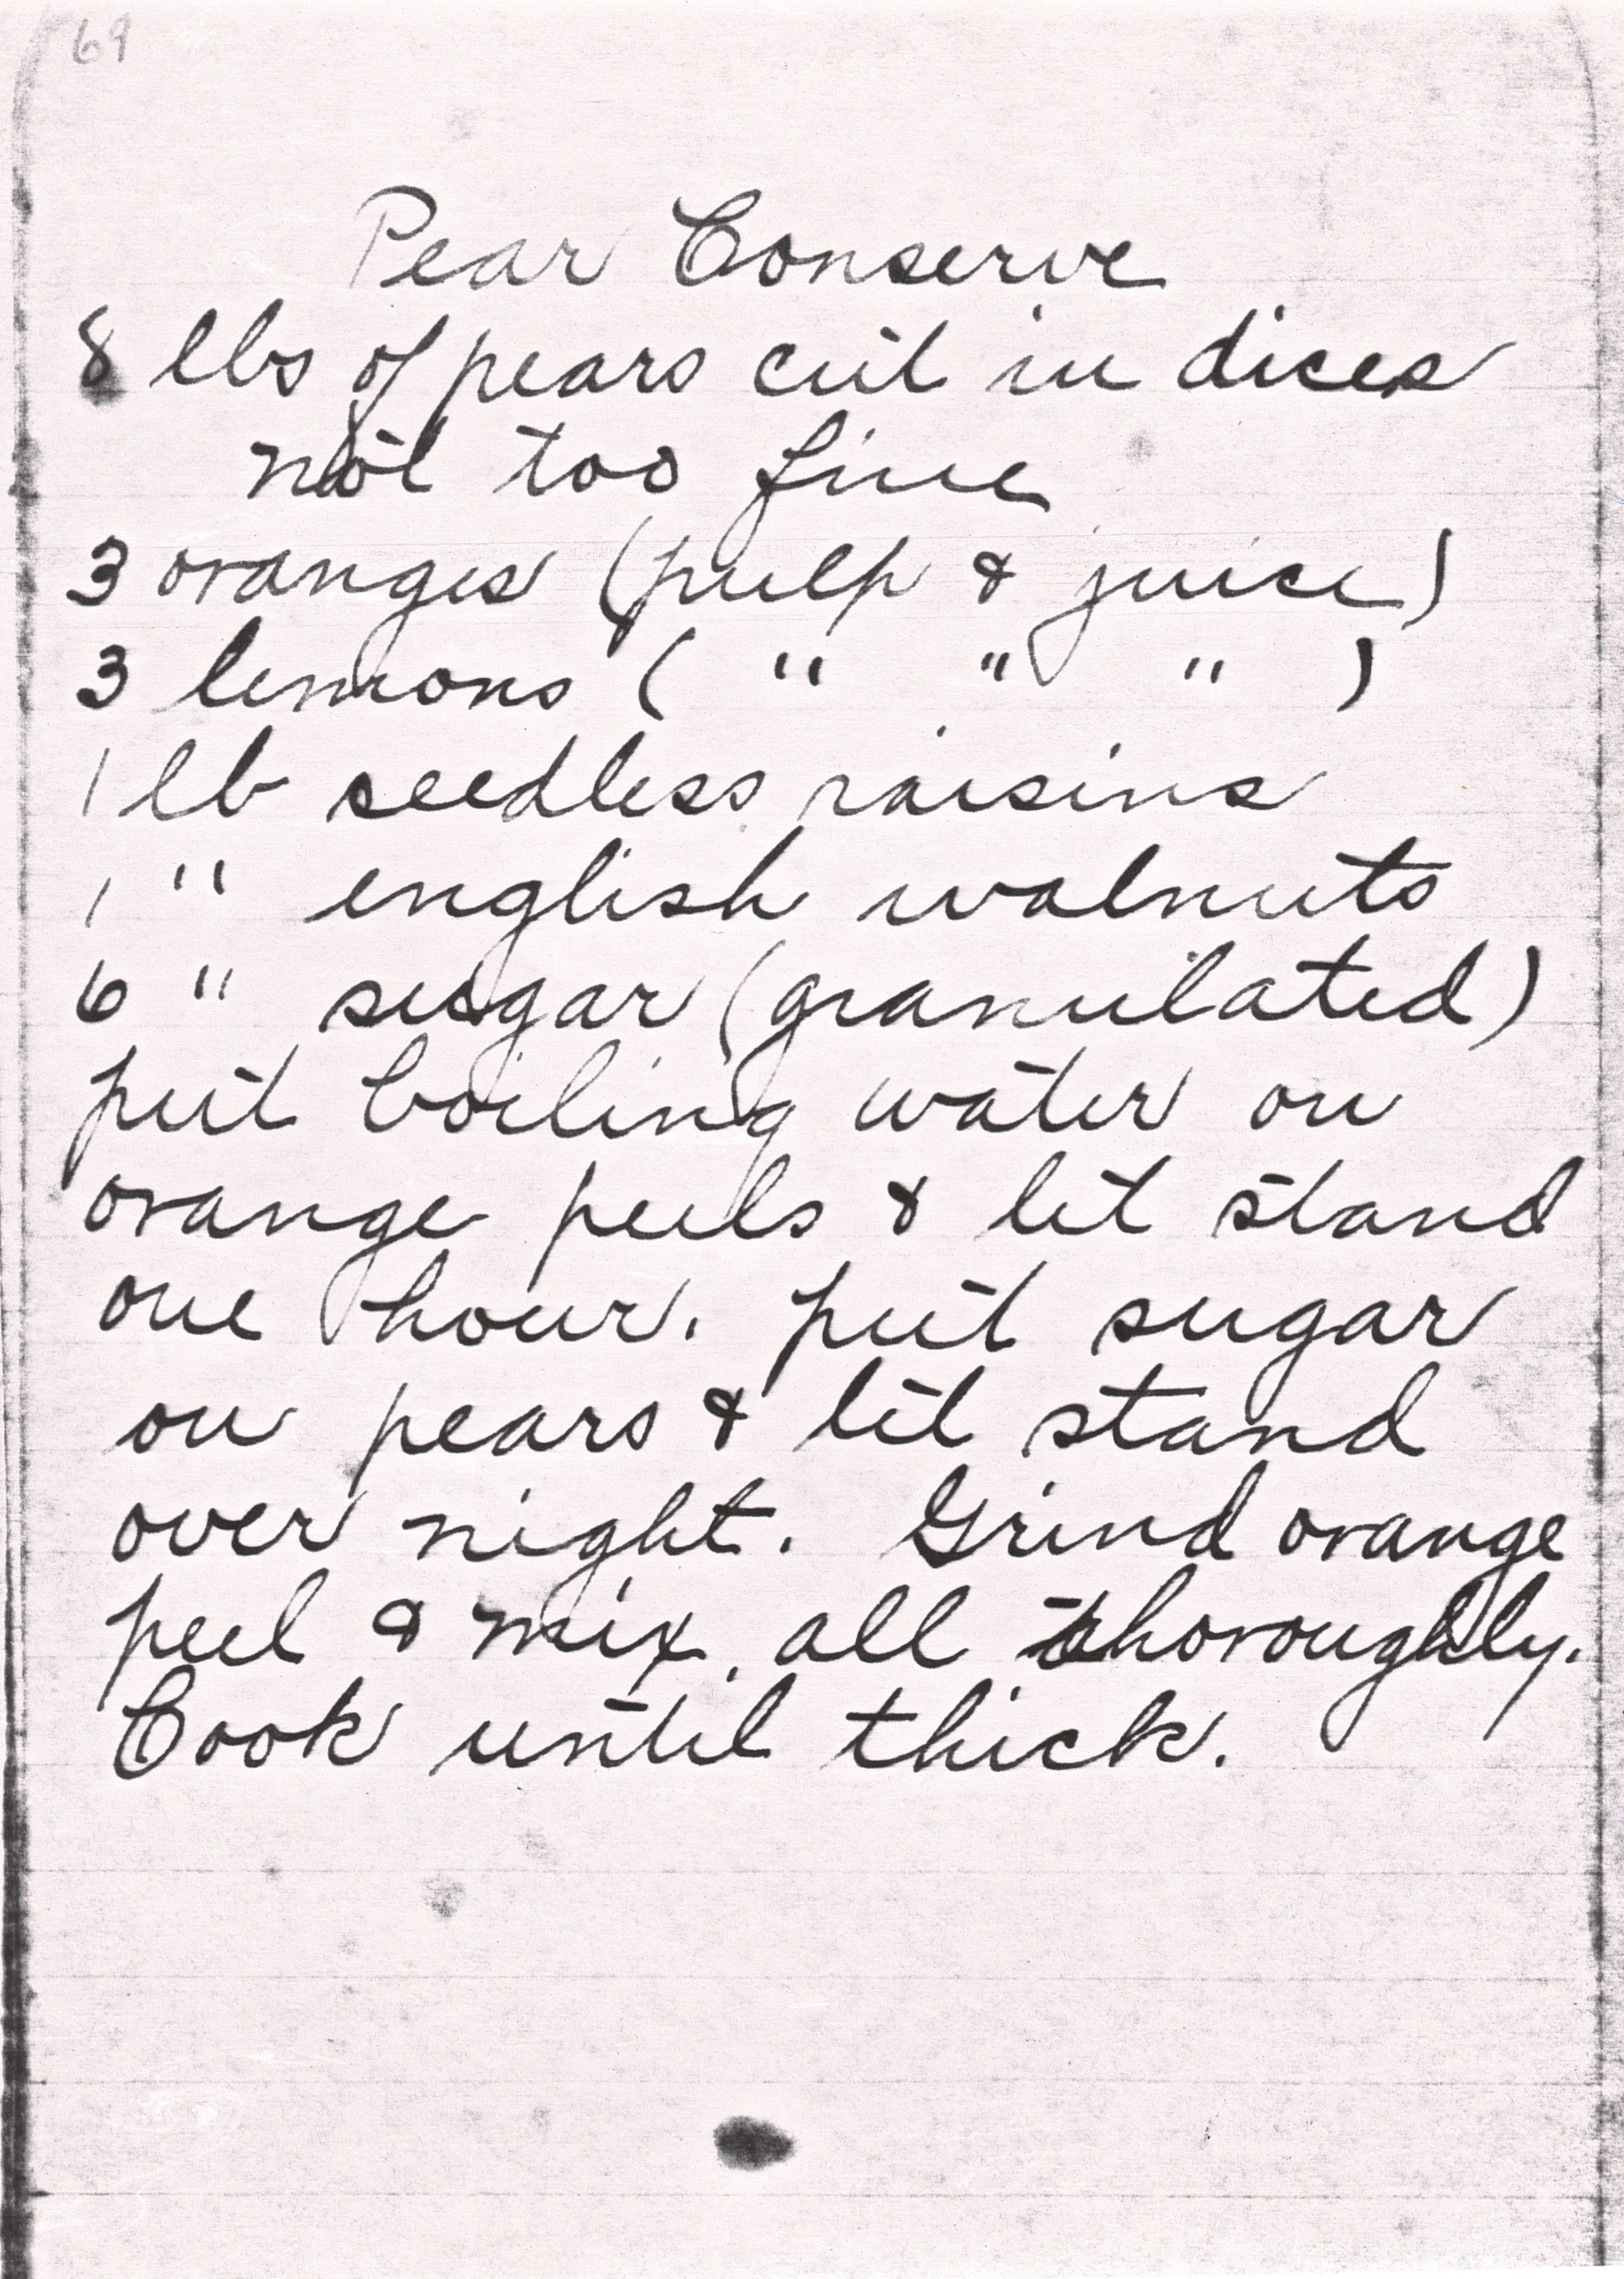 69
Pear Conserve
8 lbs of pears cut in dices
not too fine
3 oranges (pulp & juice)
3 lemons ( " " " )
1 lb seedless raisins
1 " english walnuts
6 " sugar (granulated)
put boiling water on
orange peels & let stand
one hour. put sugar
on pears & let stand
over night. Grind orange
peel & mix all thoroughly.
Cook until thick.